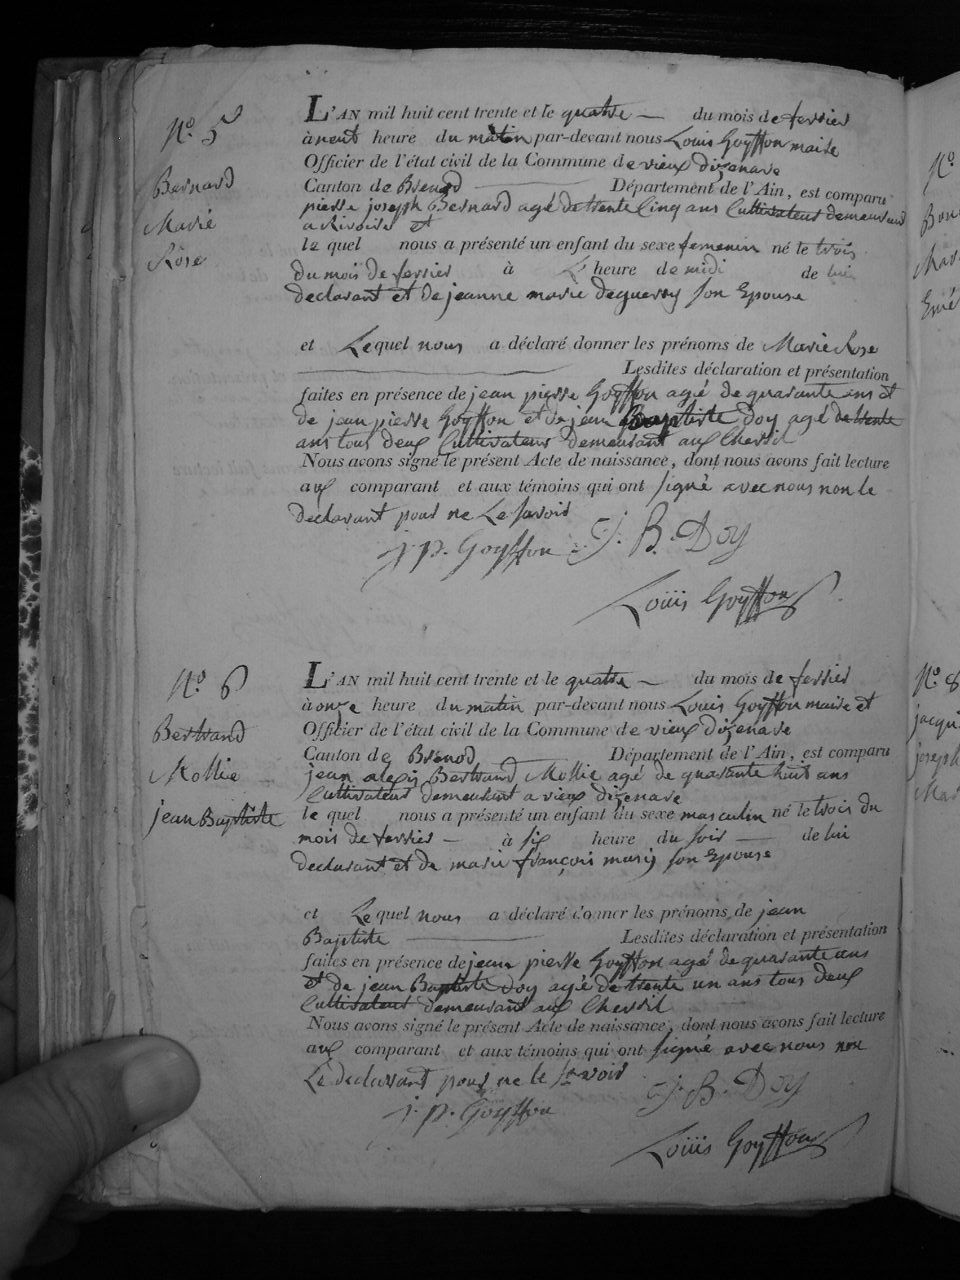 N.o 5
Bernard
Marie
Rose
L'AN mil huit cent trente et le quatre du mois de fevrier
à neuf heure du matin par-devant nous Louis Goyffon maire
Officier de l'état civil de la Commune de vieux dizenave
Canton de Brenod Département de l'Ain, est comparu
pierre joseph Bernard agé de trente Cinq ans Cultivateur demeurant
a Rivoire et
le quel nous a présenté un enfant du sexe femenin né le trois
du mois de fevrier à L' heure de midi de lui
declarant et de jeanne marie deguerry son Epouse
et Lequel nous a déclaré donner les prénoms de Marie Rose
Lesdites déclaration et présentation
faites en présence de jean pierre Goyffon agé de quarante ans et
de jean pierre Goyffon et de jean Baptiste Doy agé de trente
ans tous deux Cultivateurs demeurant aux Chevril
Nous avons signé le présent Acte de naissance, dont nous avons fait lecture
aux comparant et aux témoins qui ont signé avec nous non le
declarant pour ne Le savoir
j. p. Goyffon J. B. Doy
Louis Goyffon
N.o 6
Bertrand
Mollie
jean Baptiste
L'AN mil huit cent trente et le quatre du mois de fevrier
à onze heure du matin par-devant nous Louis Goyffon maire et
Officier de l'état civil de la Commune de vieux dizenave
Canton de Brenod Département de l'Ain, est comparu
jean alexis Bertrand Mollie agé de quarante huit ans
Cultivateur demeurant a vieux dizenave
le quel nous a présenté un enfant du sexe masculin né le trois du
mois de fevrier à six heure du soir de lui
declarant et de marie françois mari son Epouse
et Lequel nous a déclaré donner les prénoms de jean
Baptiste Lesdites déclaration et présentation
faites en présence de jean pierre Goyffon agé de quarante ans
et de jean Baptiste Doy agé de trente un ans tous deux
Cultivateur demeurant aux Chevril
Nous avons signé le présent Acte de naissance, dont nous avons fait lecture
aux comparant et aux témoins qui ont signé avec nous non
Le declarant pour ne le savoir
j. p. Goyffon J. B. Doy
Louis Goyffon
N.o
N.o 8